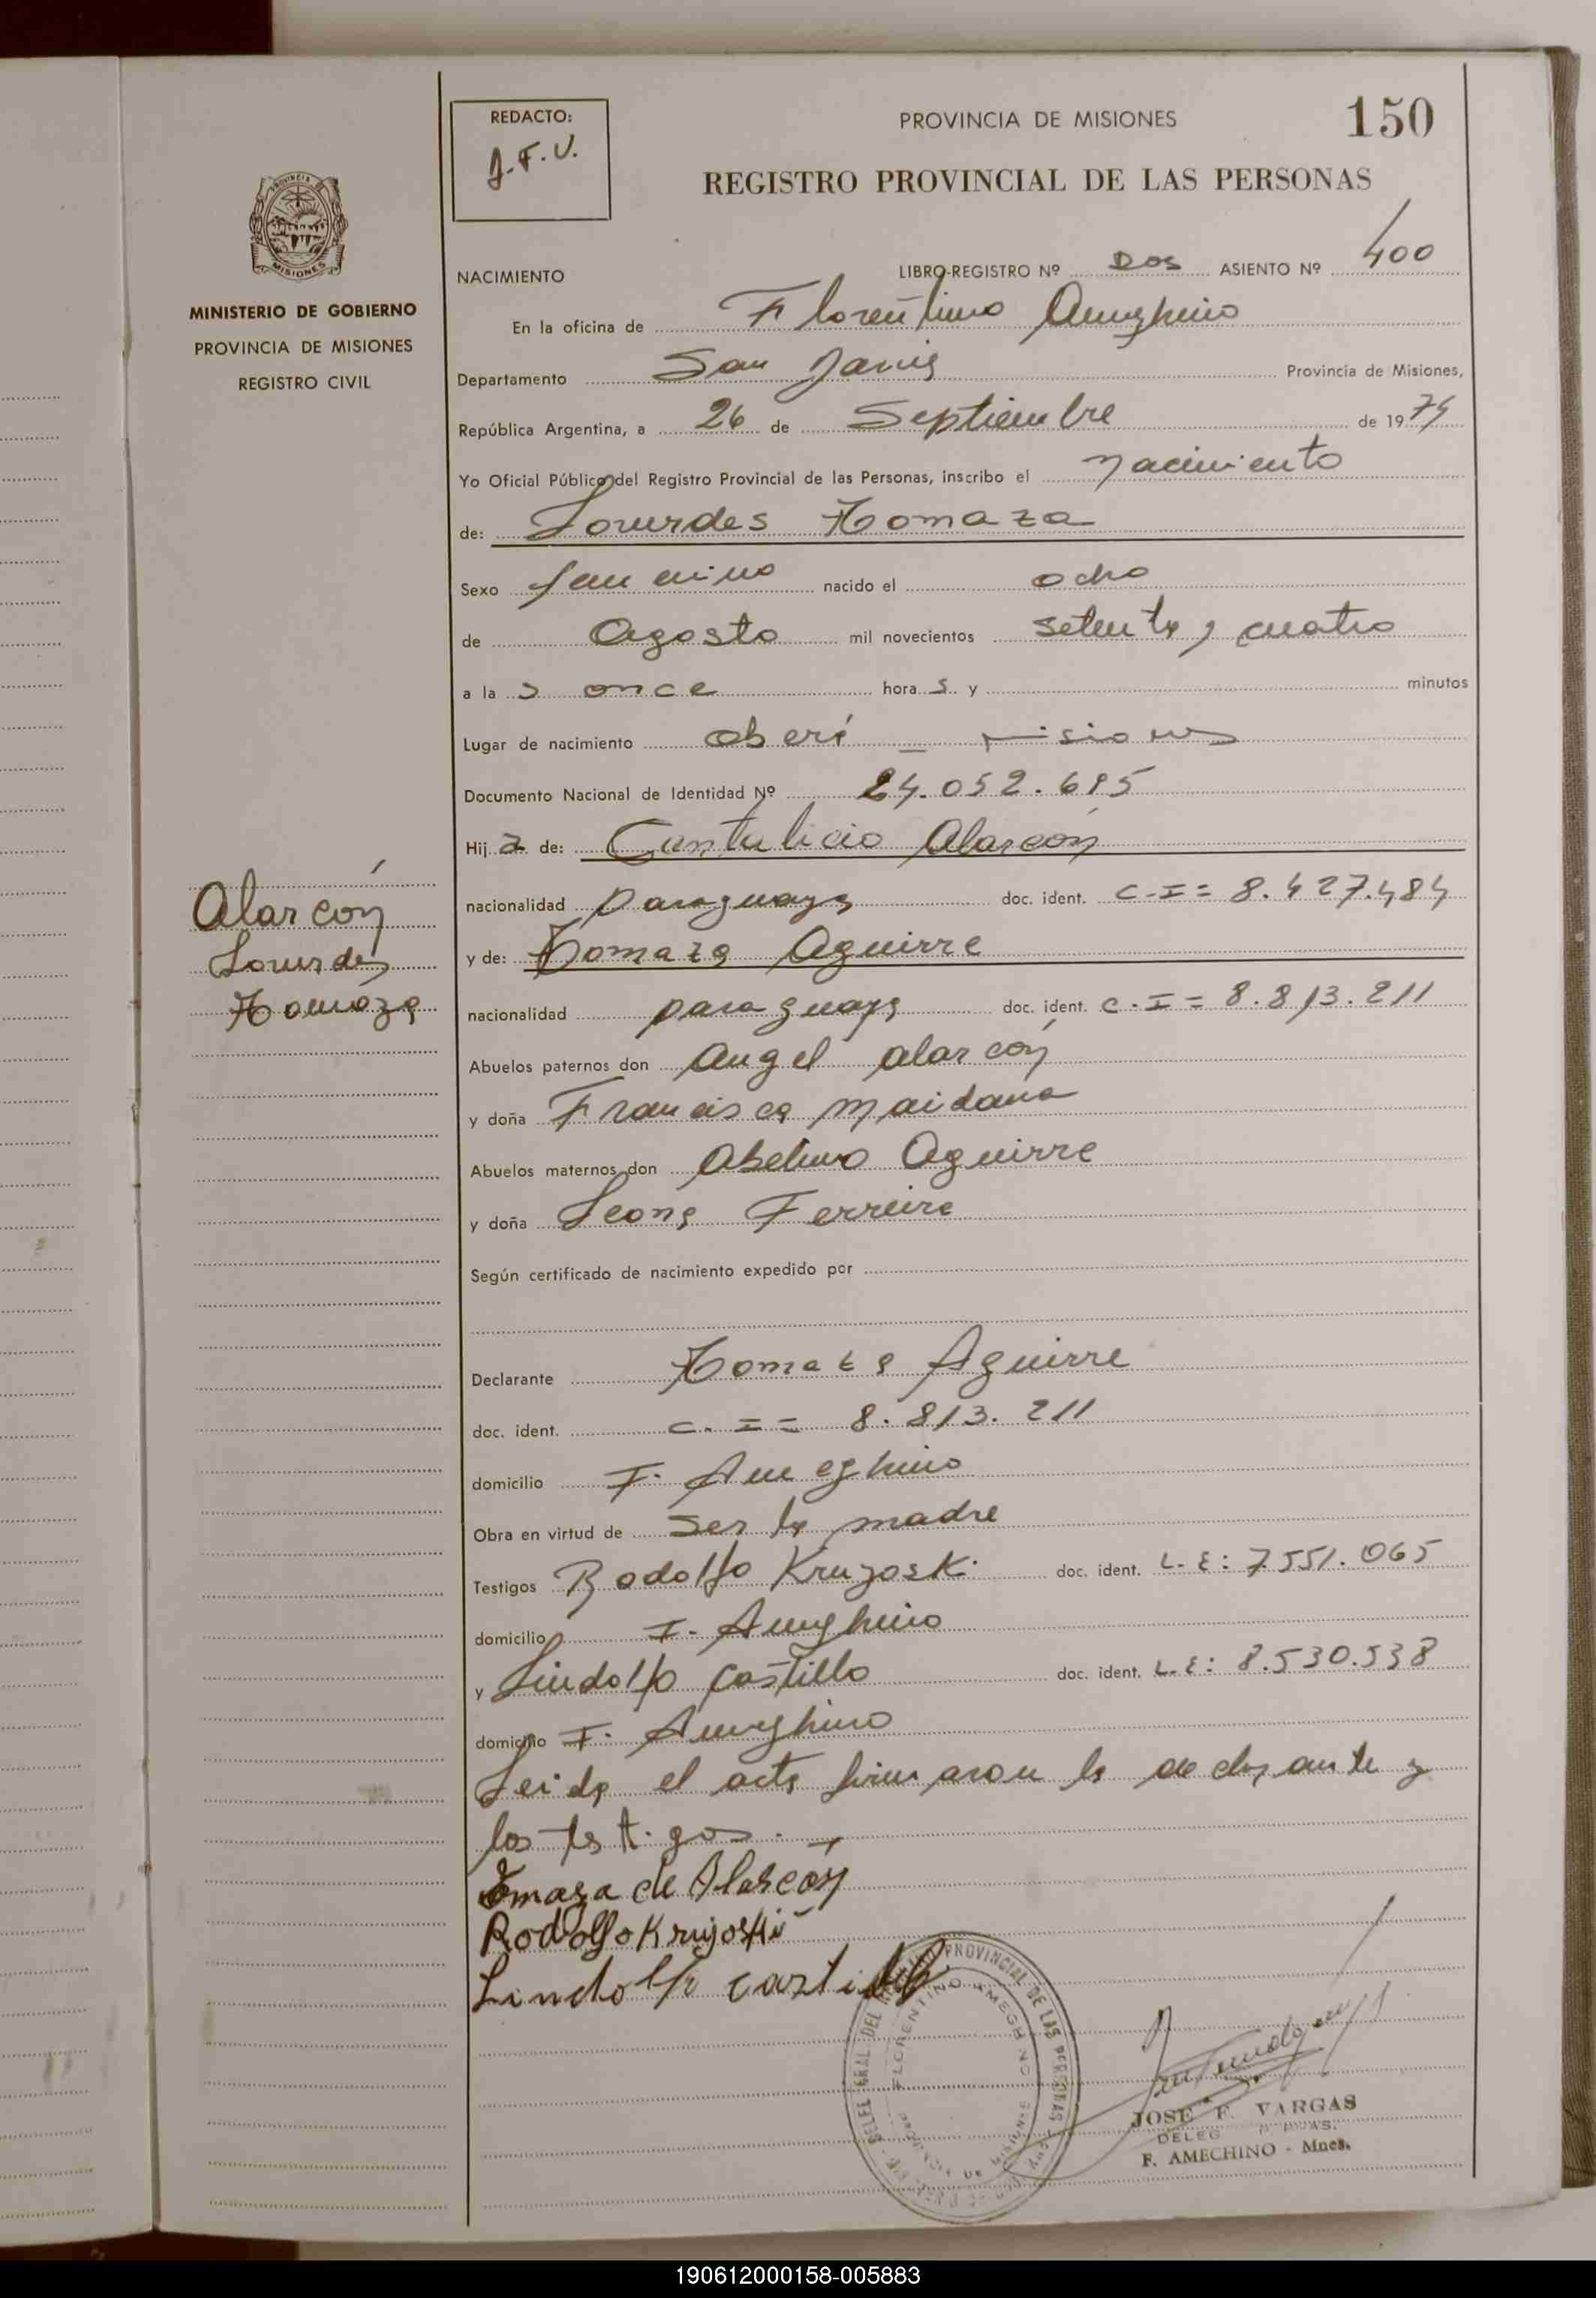 REDACTO:
J.F.V.
PROVINCIA DE MISIONES
150
REGISTRO PROVINCIAL DE LAS PERSONAS
PROVINCIA DE
MISIONES
MINISTERIO DE GOBIERNO
PROVINCIA DE MISIONES
REGISTRO CIVIL
NACIMIENTO LIBRO-REGISTRO Nº Dos ASIENTO Nº 400
En la oficina de Florentino Ameghino
Departamento San Javier Provincia de Misiones,
República Argentina, a 26 de Septiembre de 1974
Yo Oficial Público del Registro Provincial de las Personas, inscribo el nacimiento
de: Lourdes Tomaza
Sexo femenino nacido el ocho
de Agosto mil novecientos setenta y cuatro
a la s once hora s y minutos
Lugar de nacimiento oberá - Misiones
Documento Nacional de Identidad Nº 24.052.695
Hij a de: Cantalicio Alarcón
nacionalidad paraguaya doc. ident. C-I= 8.427.484
y de: Tomaza Aguirre
nacionalidad paraguaya doc. ident. C.I= 8.813.211
Alarcón
Lourdes
Tomaza
Abuelos paternos don Angel alarcón
y doña Francisca Maidana
Abuelos maternos don Abelino Aguirre
y doña Leona Ferreira
Según certificado de nacimiento expedido por
Declarante Tomaza Aguirre
doc. ident. C.I= 8.813.211
domicilio F. Ameghino
Obra en virtud de ser la madre
Testigos Rodolfo Krujoski doc. ident. L-E: 7.551.065
domicilio F. Ameghino
y Lindolfo Castillo doc. ident. L.E: 8.530.538
domicilio F. Ameghino
Leida el acta firmaron la declarante y
los testigos.
Tomaza de Alarcón
Rodolfo Krujoski
Lindolfo castillo
PROVINCIAL DE LAS PERSONAS
FLORENTINO AMEGHINO
JOSE F. VARGAS
F. AMECHINO - Mnes.
190612000158-005883